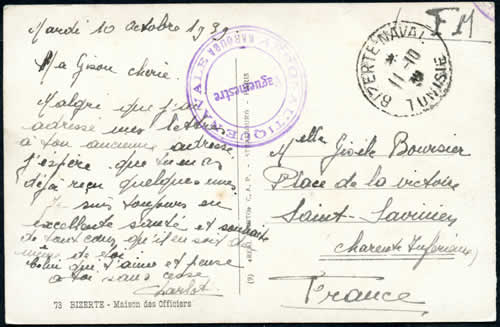 Mardi 10 Octobre 1939
Ma Gison chérie.
Malgré que j'ai
adressé mes lettres
à ton ancienne adresse
j'espère que tu en as
déjà reçu quelques unes
Je suis toujours en
excellente santé et souhaite
de tout cœur qu'il en soit de
même de toi
Celui qui t'aime et pense
à toi sans cesse
Charlot
73 BIZERTE - Maison des Officiers
AÉRONAUTIQUE NAVALE
KAROUBA
Vaguemestre
F M
BIZERTE-NAVAL
11-10
39
TUNISIE
Melle Gisèle Boursier
Place de la victoire
Saint-Savinien
Charente Inférieure
France